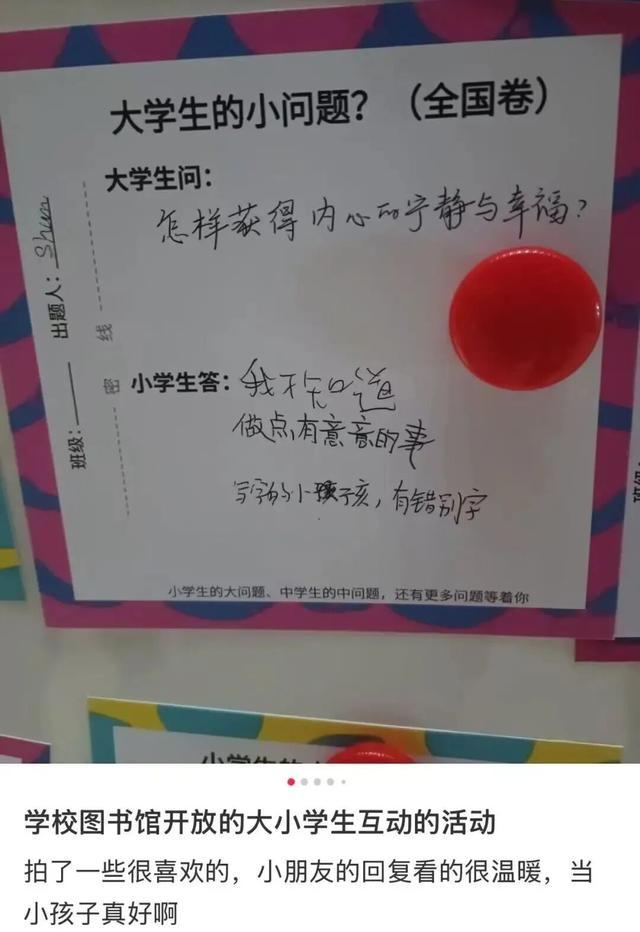 大学生的小问题？（全国卷）
大学生问：
怎样获得内心的宁静与幸福？
出题人：Shun
班级：
线
密
小学生答：我不知道
做点有意意的事
写字的小孩子，有错别字
小学生的大问题、中学生的中问题，还有更多问题等着你
学校图书馆开放的大小学生互动的活动
拍了一些很喜欢的，小朋友的回复看的很温暖，当
小孩子真好啊